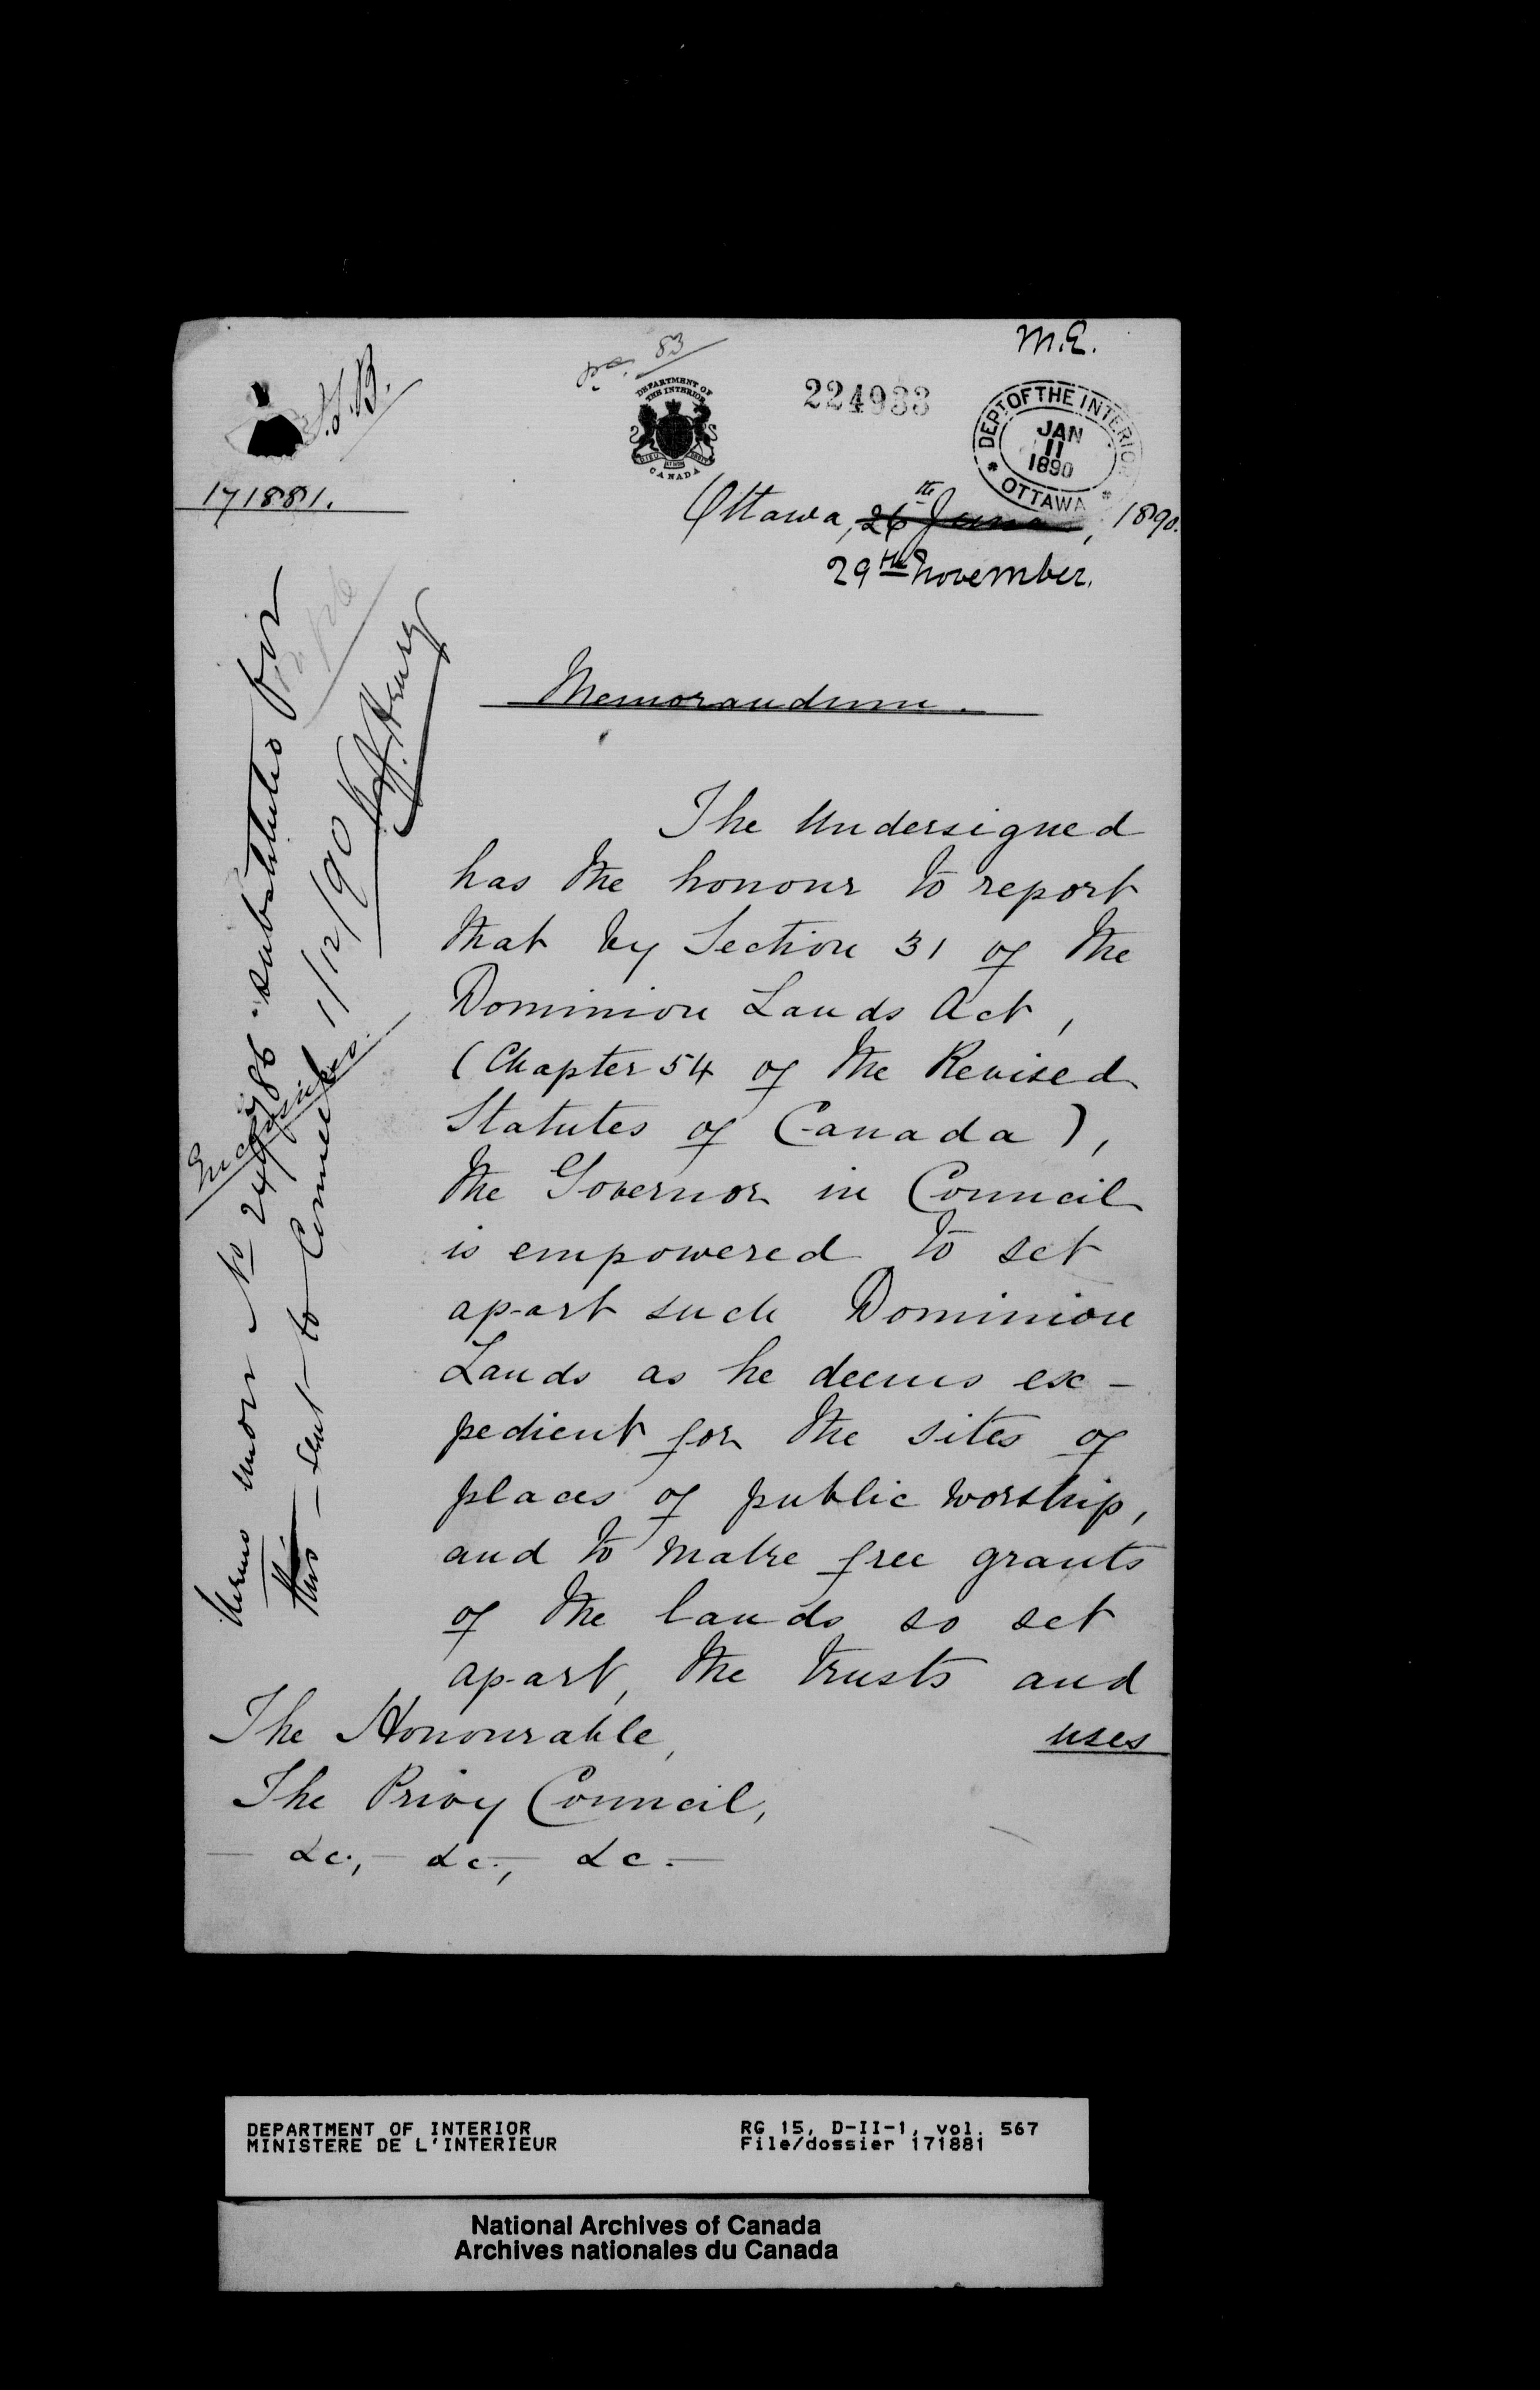 M.E.
83
224933
DEPARTMENT OF
THE INTERIOR
CANADA
DEPT. OF THE INTERIOR
JAN
11
1890
* OTTAWA *
171881.
Ottawa, 26th June, 1890.
29th November.
Memorandum.
The Undersigned
has the honour to report
that by Section 31 of the
Dominion Lands Act,
(Chapter 54 of the Revised
Statutes of Canada),
the Governor in Council
is empowered to set
apart such Dominion
Lands as he deems ex-
pedient for the sites of
places of public worship,
and to make free grants
of the lands so set
apart, the trusts and
uses
The Honourable,
The Privy Council,
- &c., - &c., &c. -
substitutes for
this - sent to Council 1/12/90
DEPARTMENT OF INTERIOR
MINISTERE DE L'INTERIEUR
RG 15, D-II-1, vol. 567
File/dossier 171881
National Archives of Canada
Archives nationales du Canada